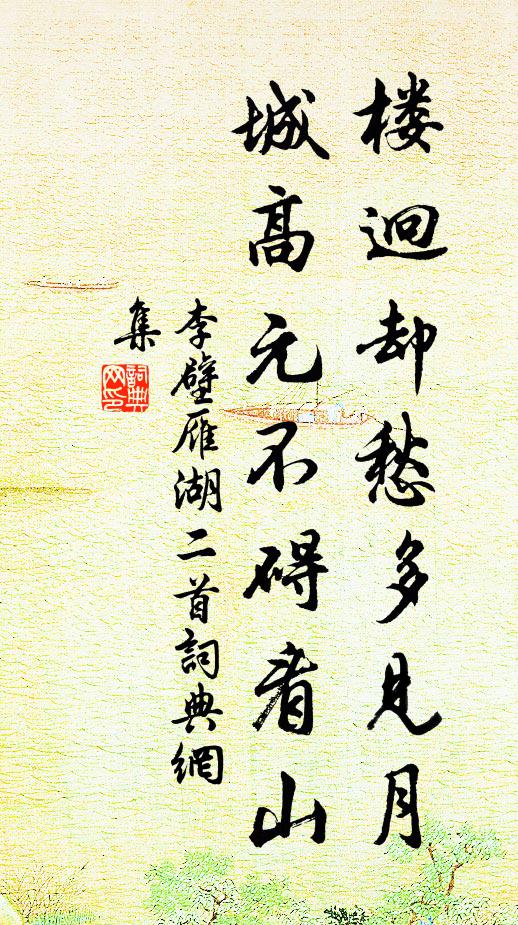 楼迥却愁多见月
城高元不碍看山
李壁雁湖二首詞典網
集
詞典
网印